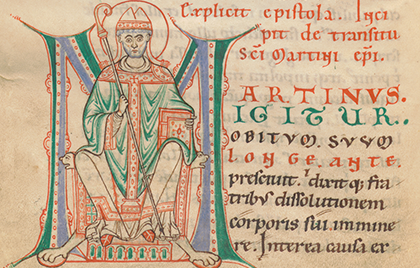 Explicit epistola. Inci
pit de transitu
Sc̅i Martini ep̅i.
MARTINUS.
IGITUR.
OBITUM. SUUM
LONGE ANTE
presciuit. dixitq; fra
tribus dissolutionem
corporis sui inmine
re. Interea causa ex